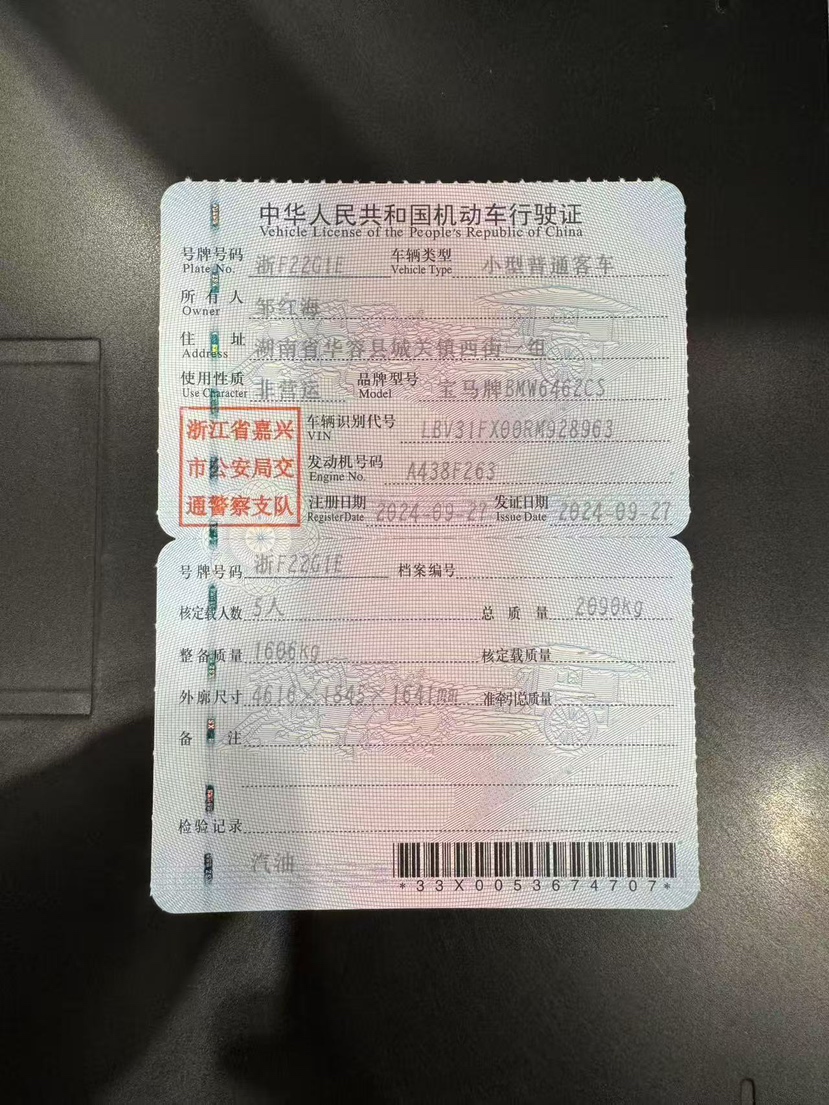 中华人民共和国机动车行驶证
Vehicle License of the People's Republic of China
号牌号码 Plate No. 浙F22G1E 车辆类型 Vehicle Type 小型普通客车
所有人 Owner 邹红海
住址 Address 湖南省华容县城关镇西街一组
使用性质 Use Character 非营运 品牌型号 Model 宝马牌BMW6462CS
浙江省嘉兴
市公安局交
通警察支队
车辆识别代号 VIN LBV31FX00RM928963
发动机号码 Engine No. A438F263
注册日期 Register Date 2024-09-27 发证日期 Issue Date 2024-09-27
号牌号码 浙F22G1E 档案编号
核定载人数 5人 总质量 2090kg
整备质量 1606kg 核定载质量 --
外廓尺寸 4616×1845×1641mm 准牵引总质量
备注
检验记录
汽油
*33X0053674707*